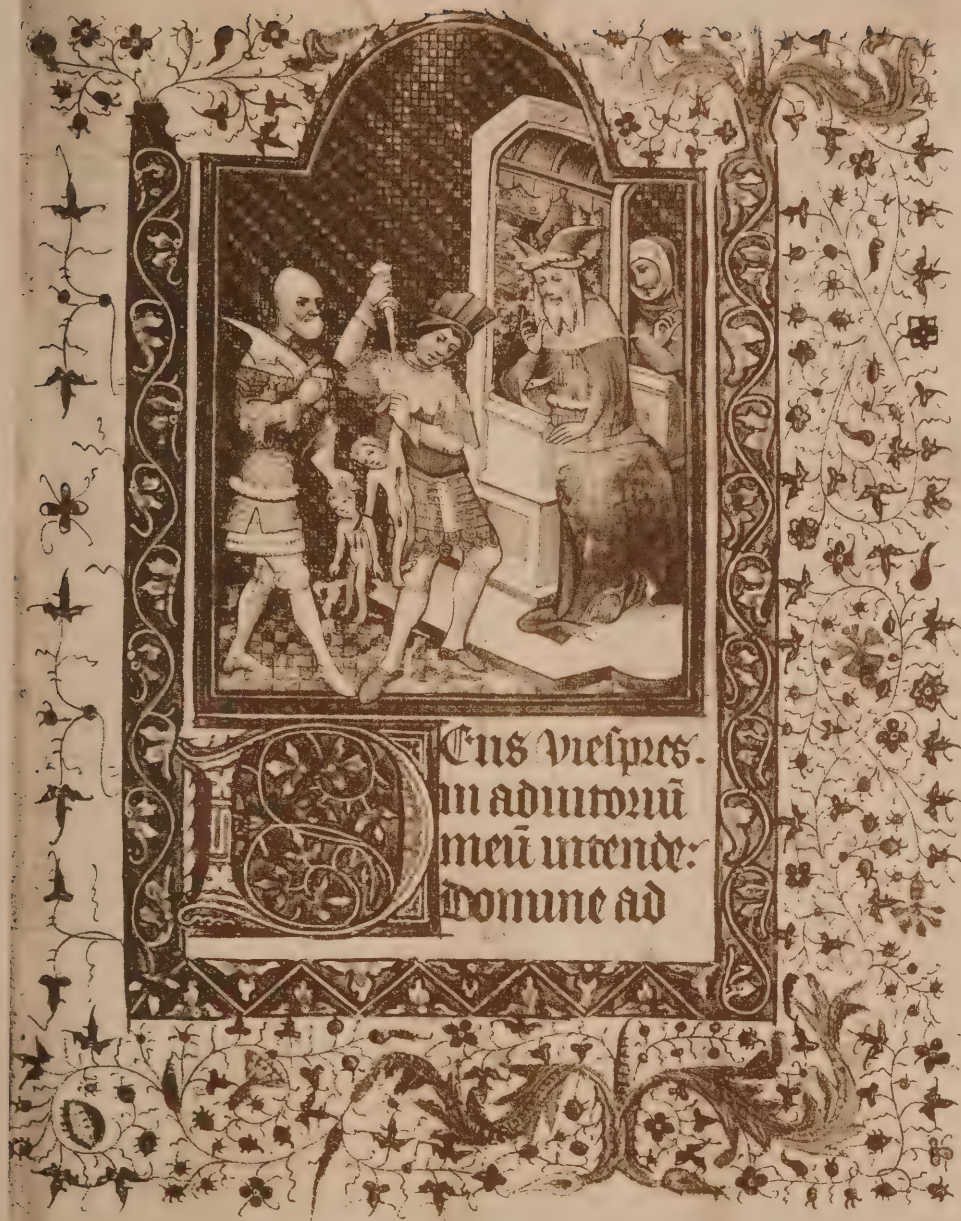 DEus vrespres.
in adiutoriū
meū intende:
Domine ad